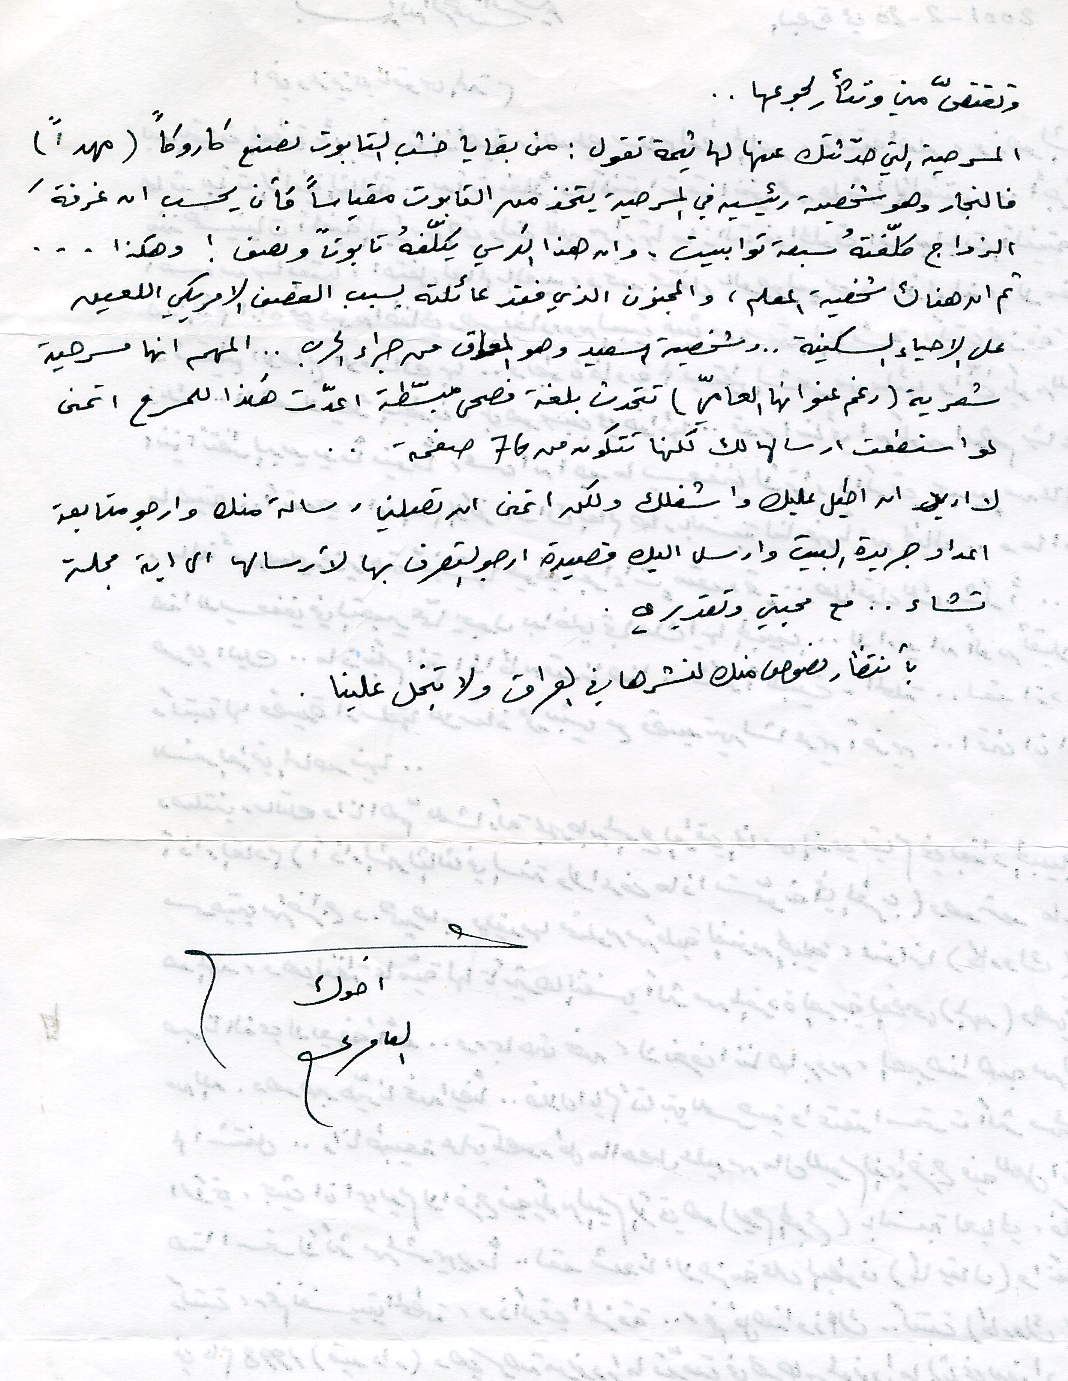 وتقتصّ مني وتثأر لجوعها ..
المسرحية التي حدّثتك عنها لها ثيمة تقول : من بقايا خشب التابوت نصنع كاروكاً ( مهداً )
فالنجار وهو شخصية رئيسية في المسرحية يتخذ من التابوت مقياساً كأن يحسب ان غرفة
الزواج كلّفتهُ سبعة توابيت . وان هذا الكرسي يكلّفهُ تابوتاً ونصف ! وهكذا ...
ثم ان هناك شخصية المعلم ، والمجنون الذي فقد عائلته بسبب القصف الامريكي اللعين
على الاحياء السكنية .. وشخصية السعيد وهو المعاق من جراء الحرب .. المهم انها مسرحية
شعرية ( رغم عنوانها العاميّ ) تتحدث بلغة فصحى مبسّطة اعدّت هكذا للمسرح اتمنى
لو استطعت ارسالها لك لكنها تتكون من 76 صفحة ..
لا اريد ان اطيل عليك واشغلك ولكن اتمنى ان تصلني رسالة منك وارجو متابعة
اعداد جريدة البيت وارسل اليك قصيدة ارجو التصرف بها لأرسالها الى اية مجلة
تشاء .. مع محبتي وتقديري .
بأنتظار نصوص منك لنشرها في العراق ولا تبخل علينا .
اخوك
العامري